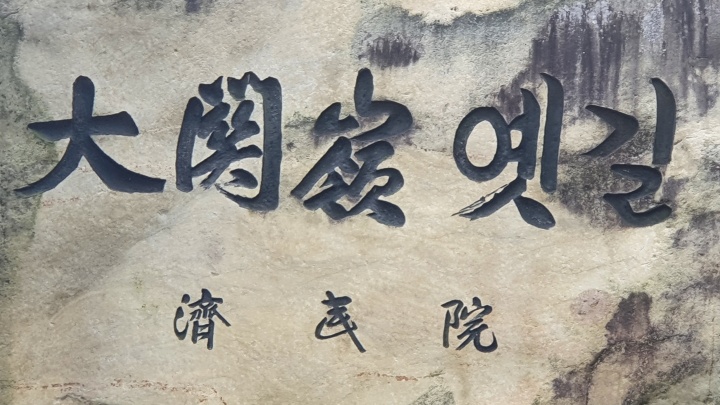 大関嶺 옛길
濟民院